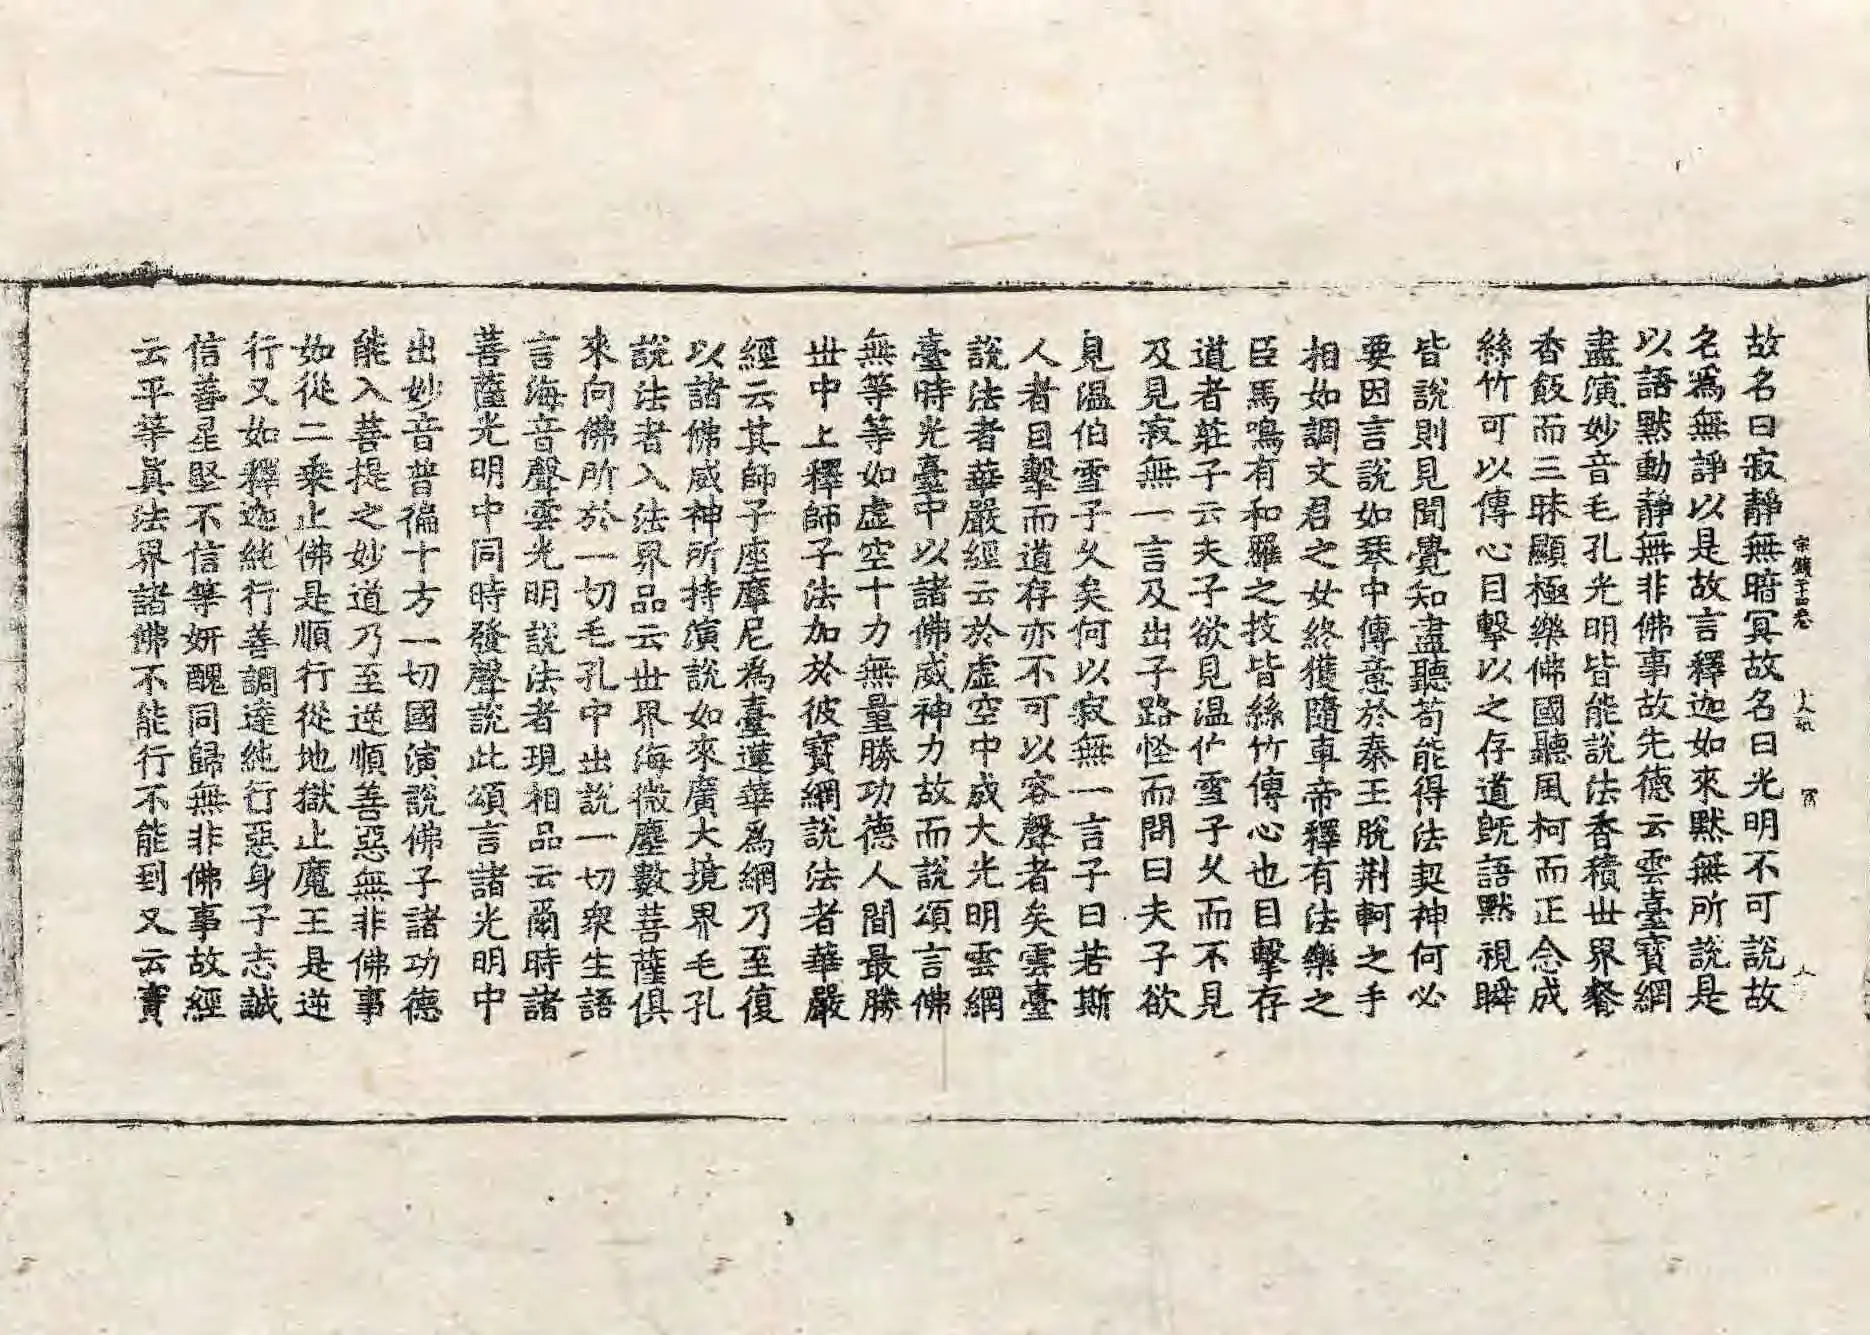 故名曰寂靜無暗冥故名曰光明不可說故
名爲無諍以是故言釋迦如來默無所說是
以語默動靜無非佛事故先德云雲臺寶網
盡演妙音毛孔光明皆能說法香積世界餐
香飯而三昧顯極樂佛國聽風柯而正念成
絲竹可以傳心目擊以之存道旣語默視瞬
皆說則見聞覺知盡聽苟能得法契神何必
要因言說如琴中傳意於秦王脫荆軻之手
相如調文君之女終獲隨車帝釋有法樂之
臣馬鳴有和羅之技皆絲竹傳心也目擊存
道者莊子云夫子欲見溫伯雪子久而不見
及見寂無一言及出子路怪而問曰夫子欲
見溫伯雪子久矣何以寂無一言子曰若斯
人者目擊而道存亦不可以容聲者矣雲臺
說法者華嚴經云於虛空中成大光明雲網
臺時光臺中以諸佛威神力故而說頌言佛
無等等如虛空十力無量勝功德人間最勝
世中上釋師子法加於彼寶網說法者華嚴
經云其師子座摩尼為臺蓮華爲網乃至復
以諸佛威神所持演說如來廣大境界毛孔
說法者入法界品云世界海微塵數菩薩俱
來向佛所於一切毛孔中出說一切衆生語
言海音聲雲光明說法者現相品云爾時諸
菩薩光明中同時發聲說此頌言諸光明中
出妙音普徧十方一切國演說佛子諸功德
能入菩提之妙道乃至逆順善惡無非佛事
如從二乘止佛是順行從地獄止魔王是逆
行又如釋迦純行善調達純行惡身子志誠
信善星堅不信等妍醜同歸無非佛事故經
云平等眞法界諸佛不能行不能到又云實
宗鏡二十四卷